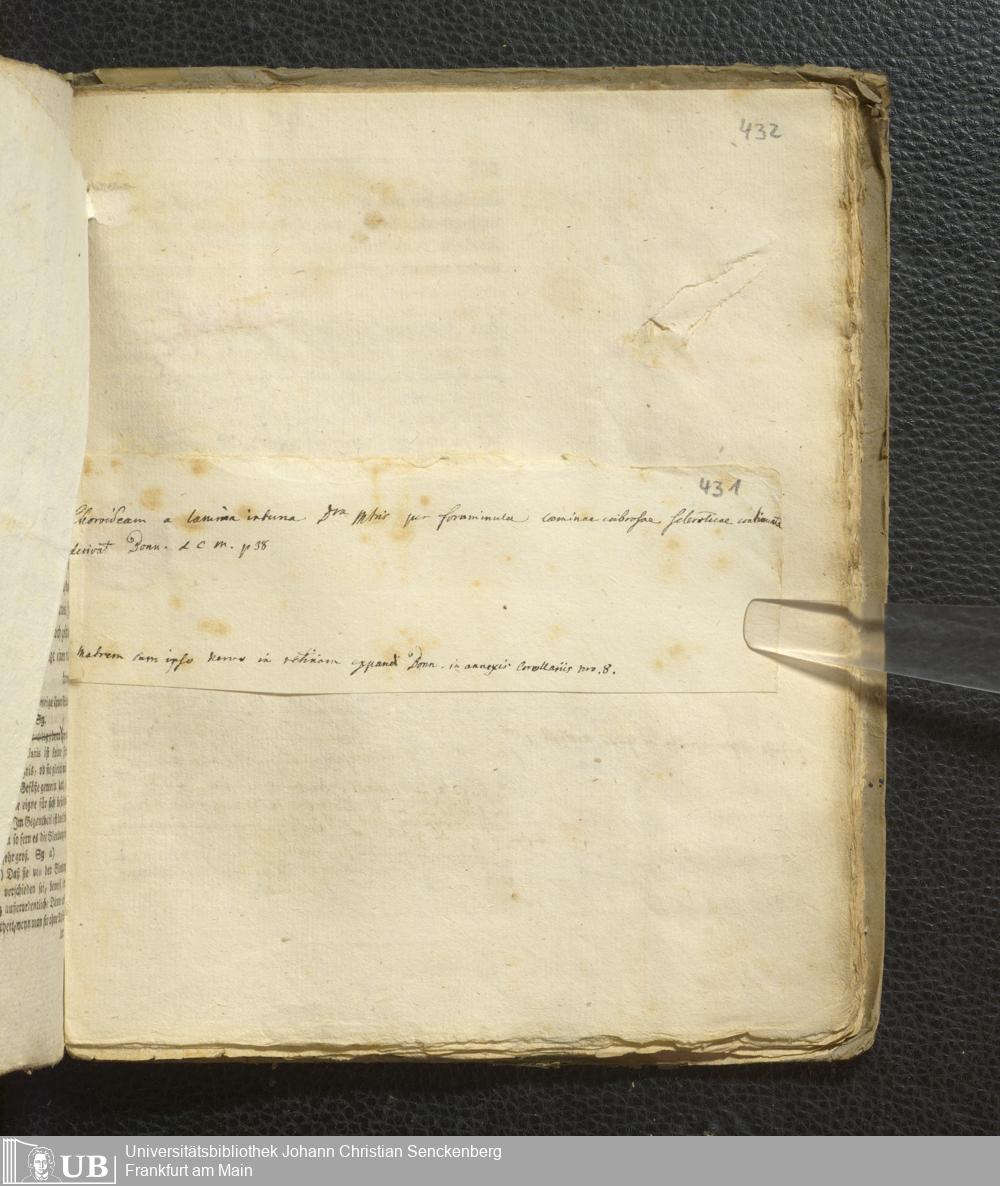 432
431
Choroideam a lamina interna Dræ Mtris per foraminula laminae cribrosae scleroticae continuata
derivat Donn. d C m. p 38
Matrem cum ipso nervo in retinam expandi Donn. in annexis Corollariis nro. 8.
Sg.
Universitätsbibliothek Johann Christian Senckenberg
Frankfurt am Main
UB